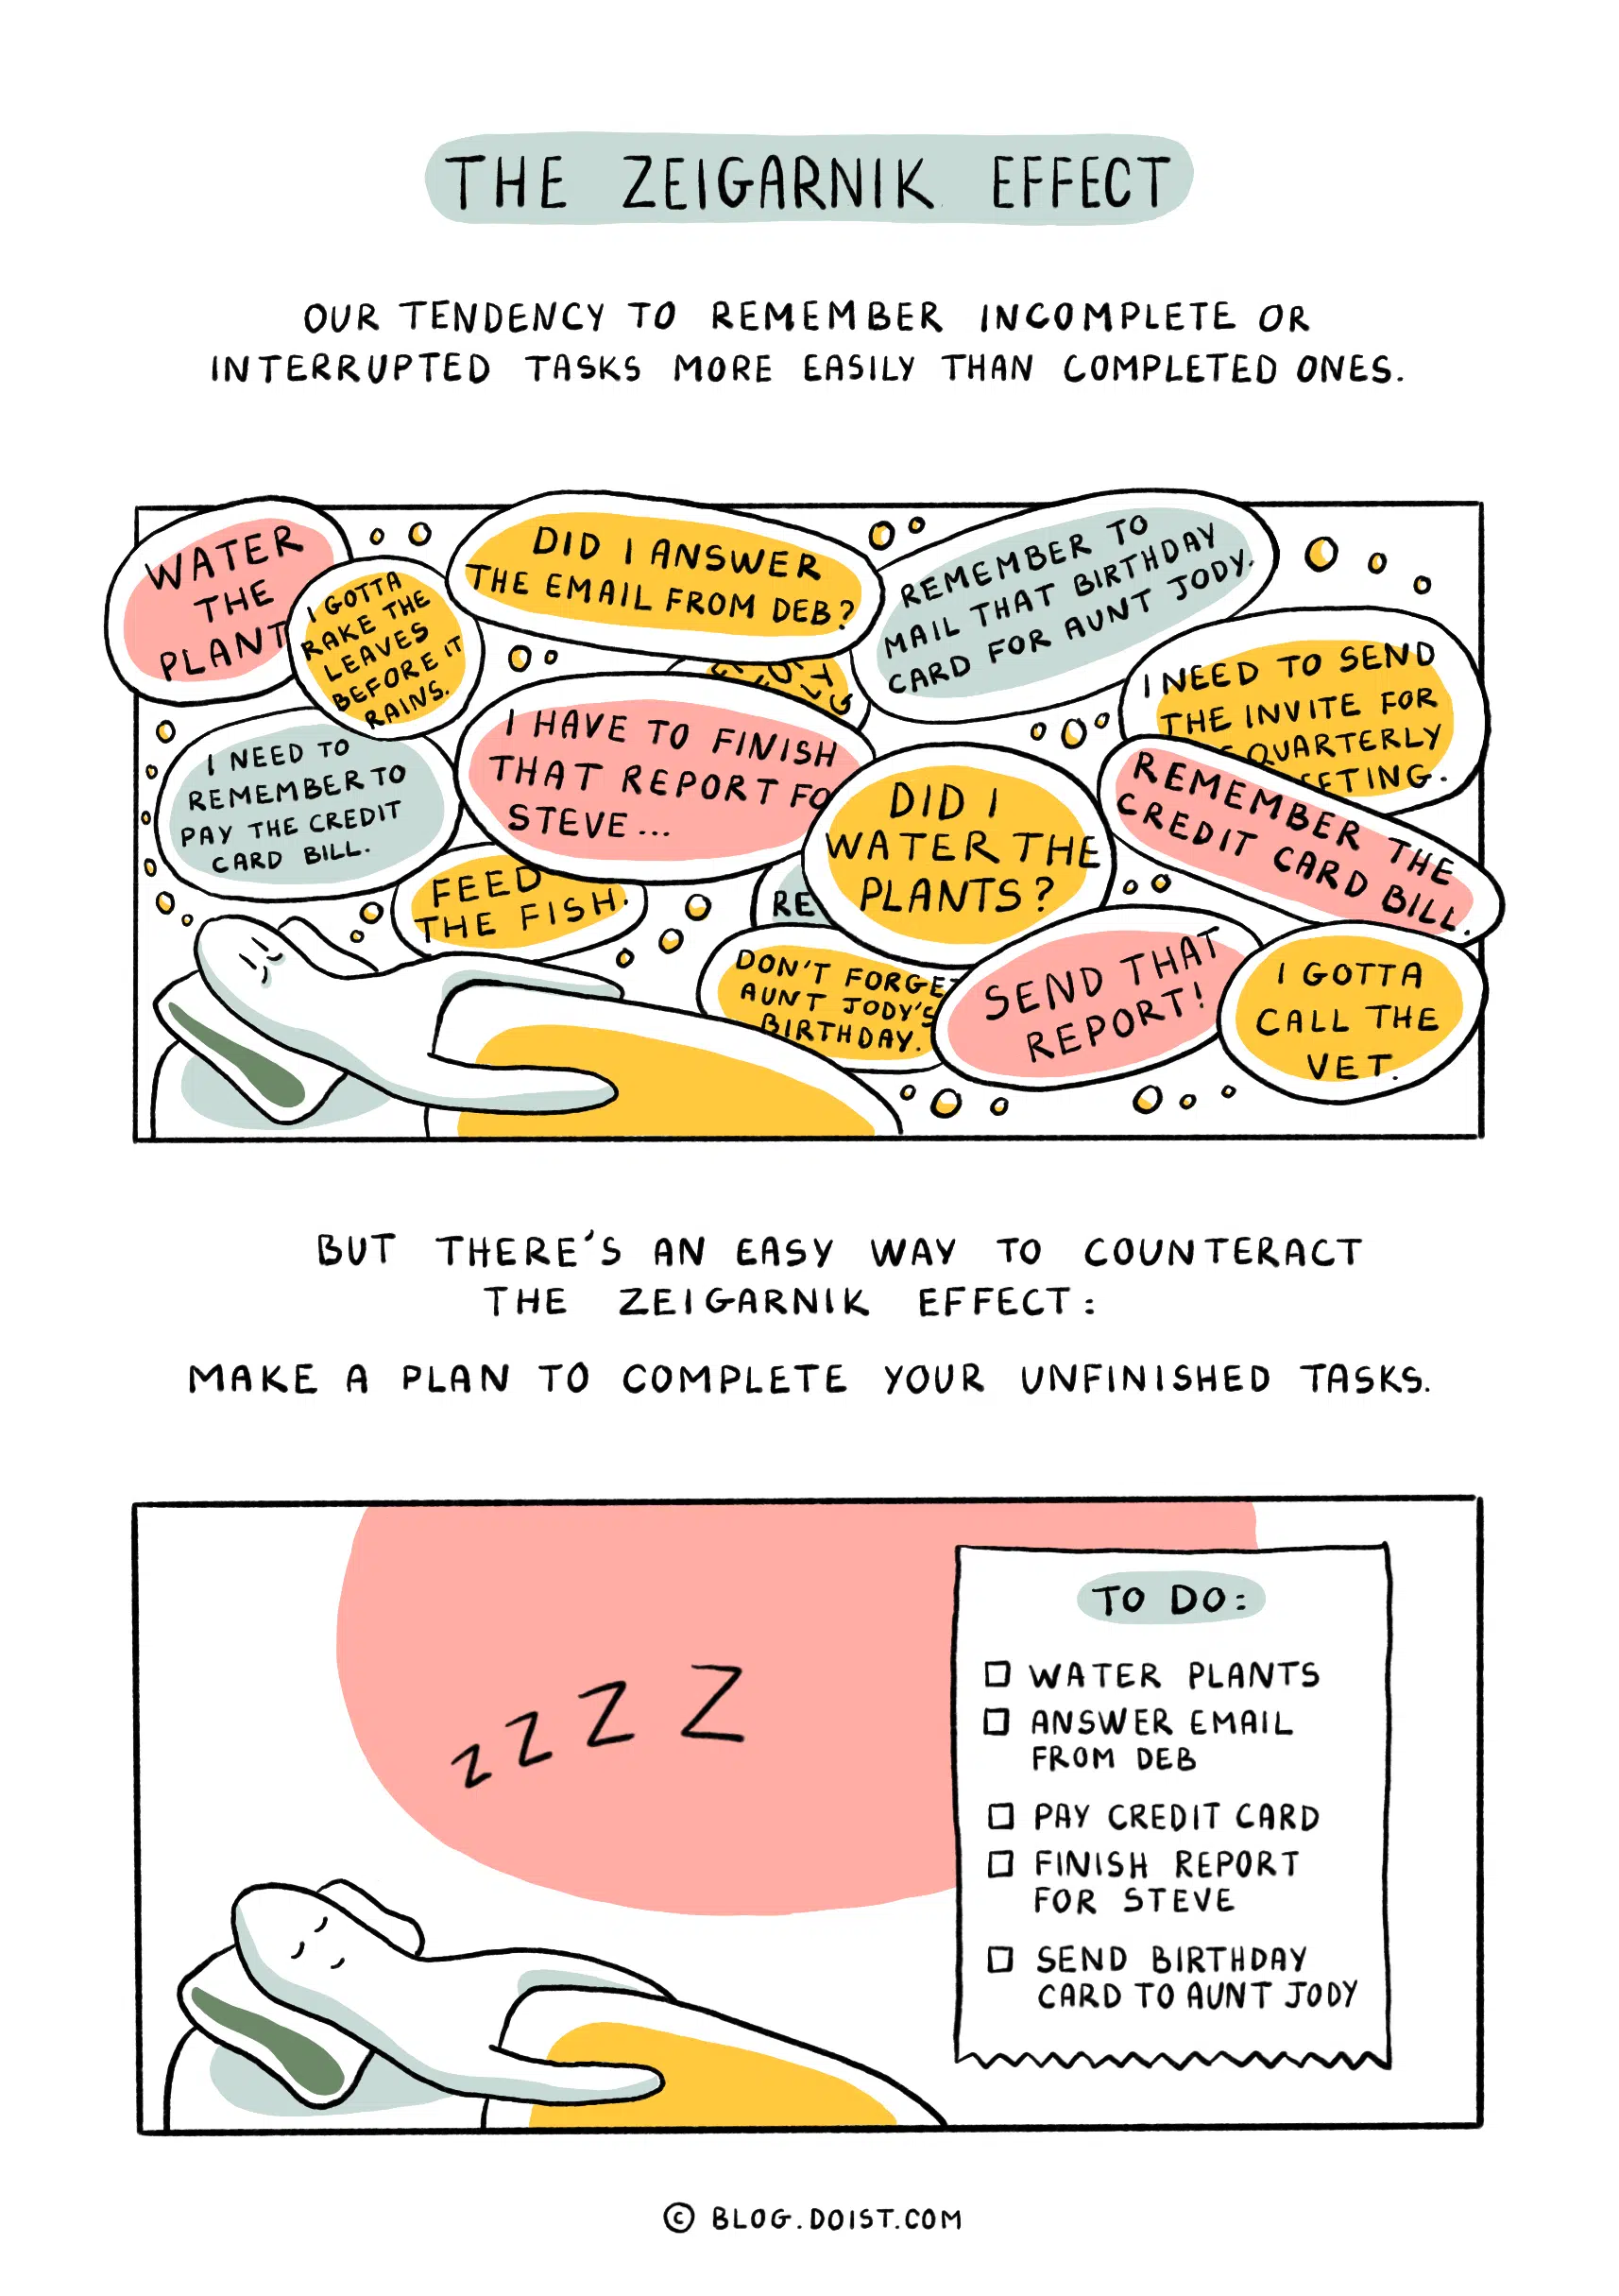 THE ZEIGARNIK EFFECT
OUR TENDENCY TO REMEMBER INCOMPLETE OR
INTERRUPTED TASKS MORE EASILY THAN COMPLETED ONES.
WATER
THE
PLANT
I GOTTA
RAKE THE
LEAVES
BEFORE IT
RAINS.
DID I ANSWER
THE EMAIL FROM DEB?
REMEMBER TO
MAIL THAT BIRTHDAY
CARD FOR AUNT JODY.
I NEED TO SEND
THE INVITE FOR
QUARTERLY
I NEED TO
REMEMBER TO
PAY THE CREDIT
CARD BILL.
I HAVE TO FINISH
THAT REPORT
STEVE...
DID I
WATER THE
PLANTS?
REMEMBER THE
CREDIT CARD BILL.
FEED
THE FISH.
RE
DON'T FORGET
AUNT JODY'S
BIRTHDAY.
SEND THAT
REPORT!
I GOTTA
CALL THE
VET.
BUT THERE'S AN EASY WAY TO COUNTERACT
THE ZEIGARNIK EFFECT:
MAKE A PLAN TO COMPLETE YOUR UNFINISHED TASKS.
z z Z Z
TO DO:
WATER PLANTS
ANSWER EMAIL
FROM DEB
PAY CREDIT CARD
FINISH REPORT
FOR STEVE
SEND BIRTHDAY
CARD TO AUNT JODY
© BLOG.DOIST.COM